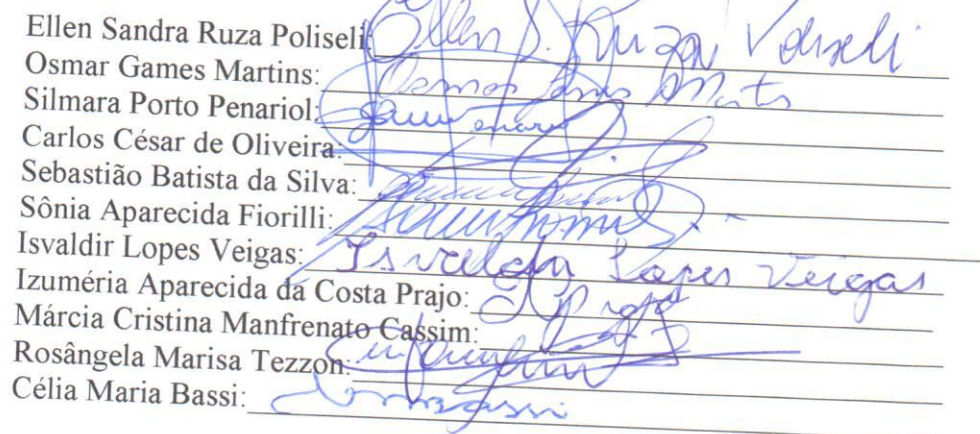 Ellen Sandra Ruza Poliseli: Ellen S. Ruza Poliseli
Osmar Games Martins: Osmar Games Martins
Silmara Porto Penariol:
Carlos César de Oliveira:
Sebastião Batista da Silva:
Sônia Aparecida Fiorilli:
Isvaldir Lopes Veigas: Isvaldir Lopes Veigas
Izuméria Aparecida da Costa Prajo: Prajo
Márcia Cristina Manfrenato Cassim:
Rosângela Marisa Tezzon:
Célia Maria Bassi: